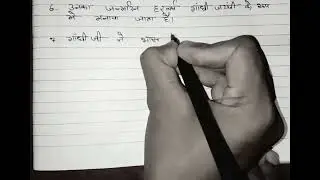 6. उनका जन्मदिन हर वर्ष गांधी जयंती के रूप
में मनाया जाता है।
7 गांधी जी ने भार